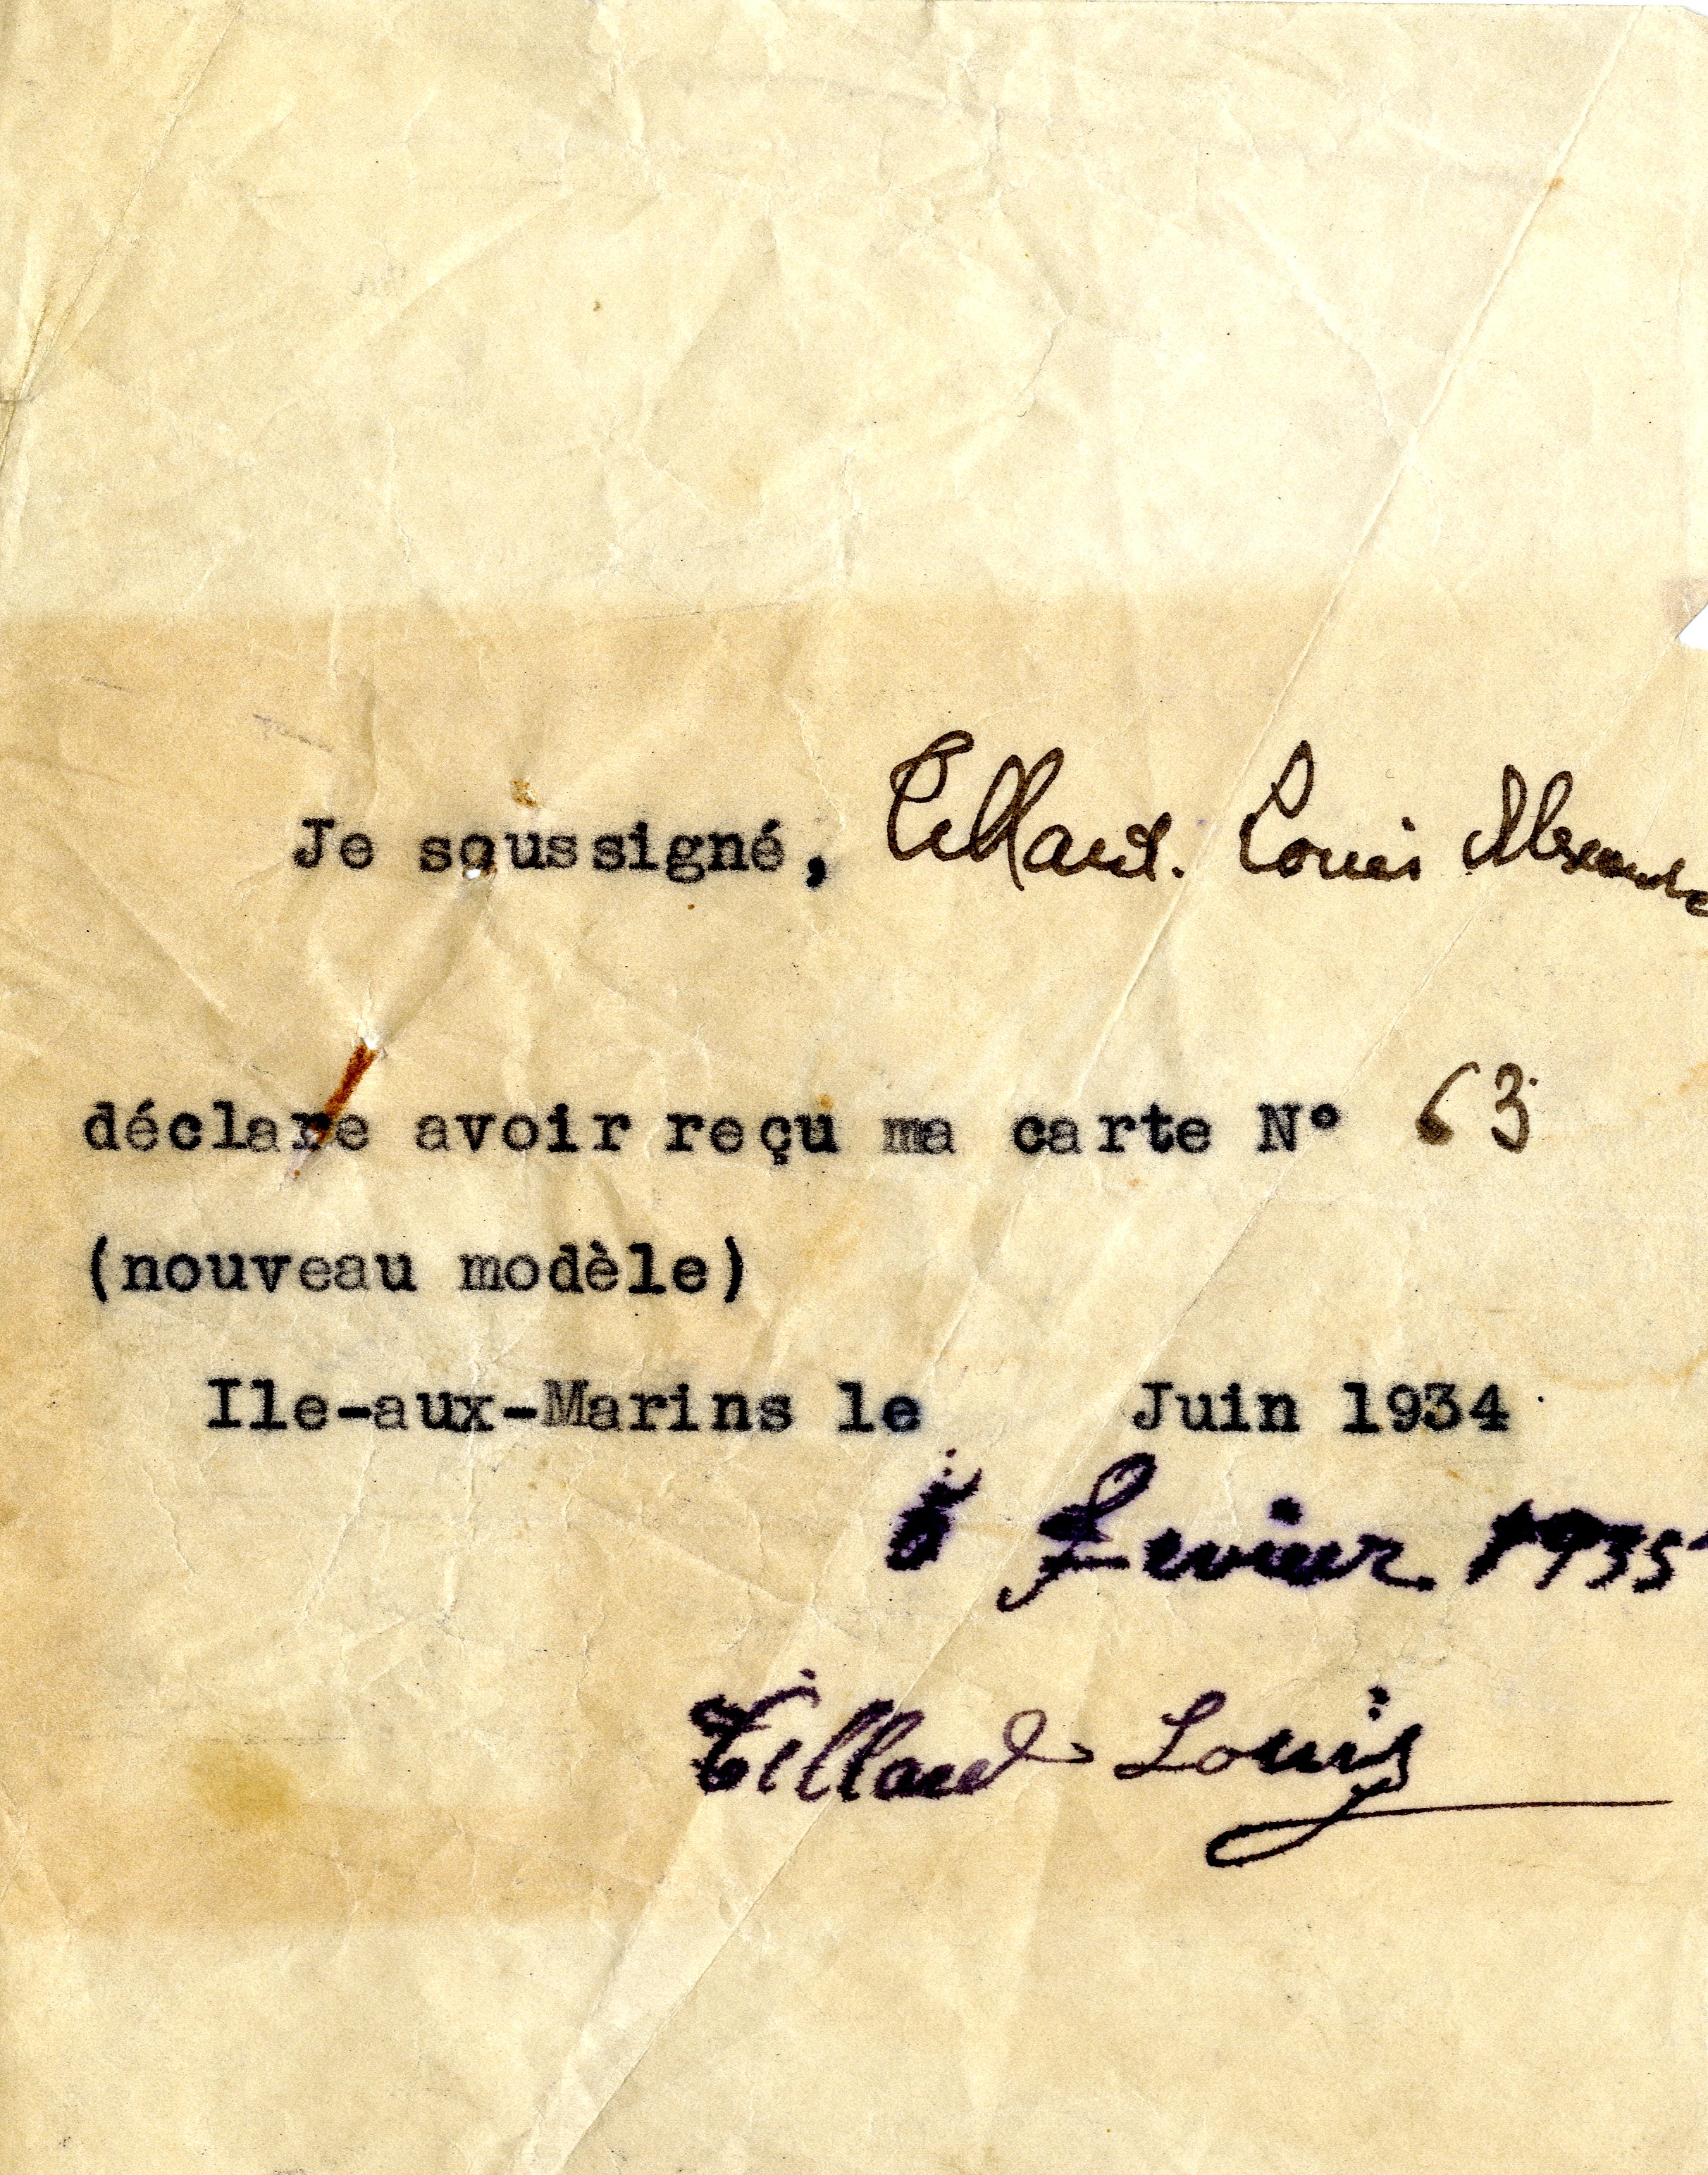 Je soussigné, Tillard. Louis Alexandre
déclare avoir reçu ma carte N° 63
(nouveau modèle)
Ile-aux-Marins le Juin 1934
5 Fevrier 1935
Tillard Louis